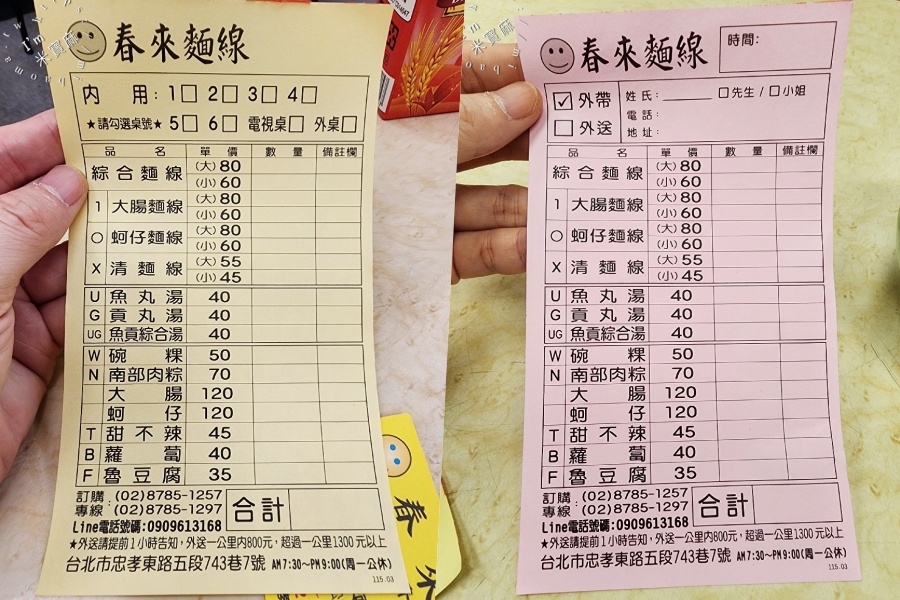 春來麵線
內用: 1□ 2□ 3□ 4□
★請勾選桌號★ 5□ 6□ 電視桌□ 外桌□
品名 單價 數量 備註欄
綜合麵線 (大) 80
(小) 60
1 大腸麵線 (大) 80
(小) 60
O 蚵仔麵線 (大) 80
(小) 60
X 清麵線 (大) 55
(小) 45
U 魚丸湯 40
G 貢丸湯 40
UG 魚貢綜合湯 40
W 碗粿 50
N 南部肉粽 70
大腸 120
蚵仔 120
T 甜不辣 45
B 蘿蔔 40
F 魯豆腐 35
訂購專線: (02)8785-1257
(02)8785-1297
合計
Line電話號碼:0909613168
★外送請提前1小時告知,外送一公里內800元,超過一公里1300元以上
台北市忠孝東路五段743巷7號 AM7:30~PM9:00(周一公休)
115.03
春
外
春來麵線
時間:
☑外帶
□外送
姓氏: ______ □先生 / □小姐
電話:
地址:
品名 單價 數量 備註欄
綜合麵線 (大) 80
(小) 60
1 大腸麵線 (大) 80
(小) 60
O 蚵仔麵線 (大) 80
(小) 60
X 清麵線 (大) 55
(小) 45
U 魚丸湯 40
G 貢丸湯 40
UG 魚貢綜合湯 40
W 碗粿 50
N 南部肉粽 70
大腸 120
蚵仔 120
T 甜不辣 45
B 蘿蔔 40
F 魯豆腐 35
訂購專線: (02)8785-1257
(02)8785-1297
合計
Line電話號碼:0909613168
★外送請提前1小時告知,外送一公里內800元,超過一公里1300元以上
台北市忠孝東路五段743巷7號 AM7:30~PM9:00(周一公休)
115.03
米寶麻
米寶麻